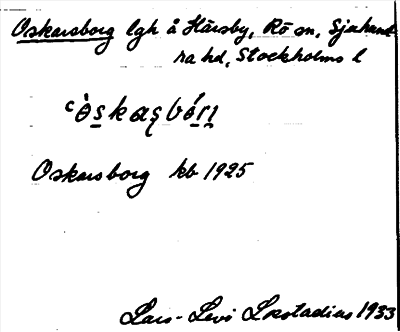 Oskarsborg lgh å Hårsby, Rö sn, Sjuhund
ra hd, Stockholms l
Oskarsborg kb 1925
Lars-Levi Læstadius 1933